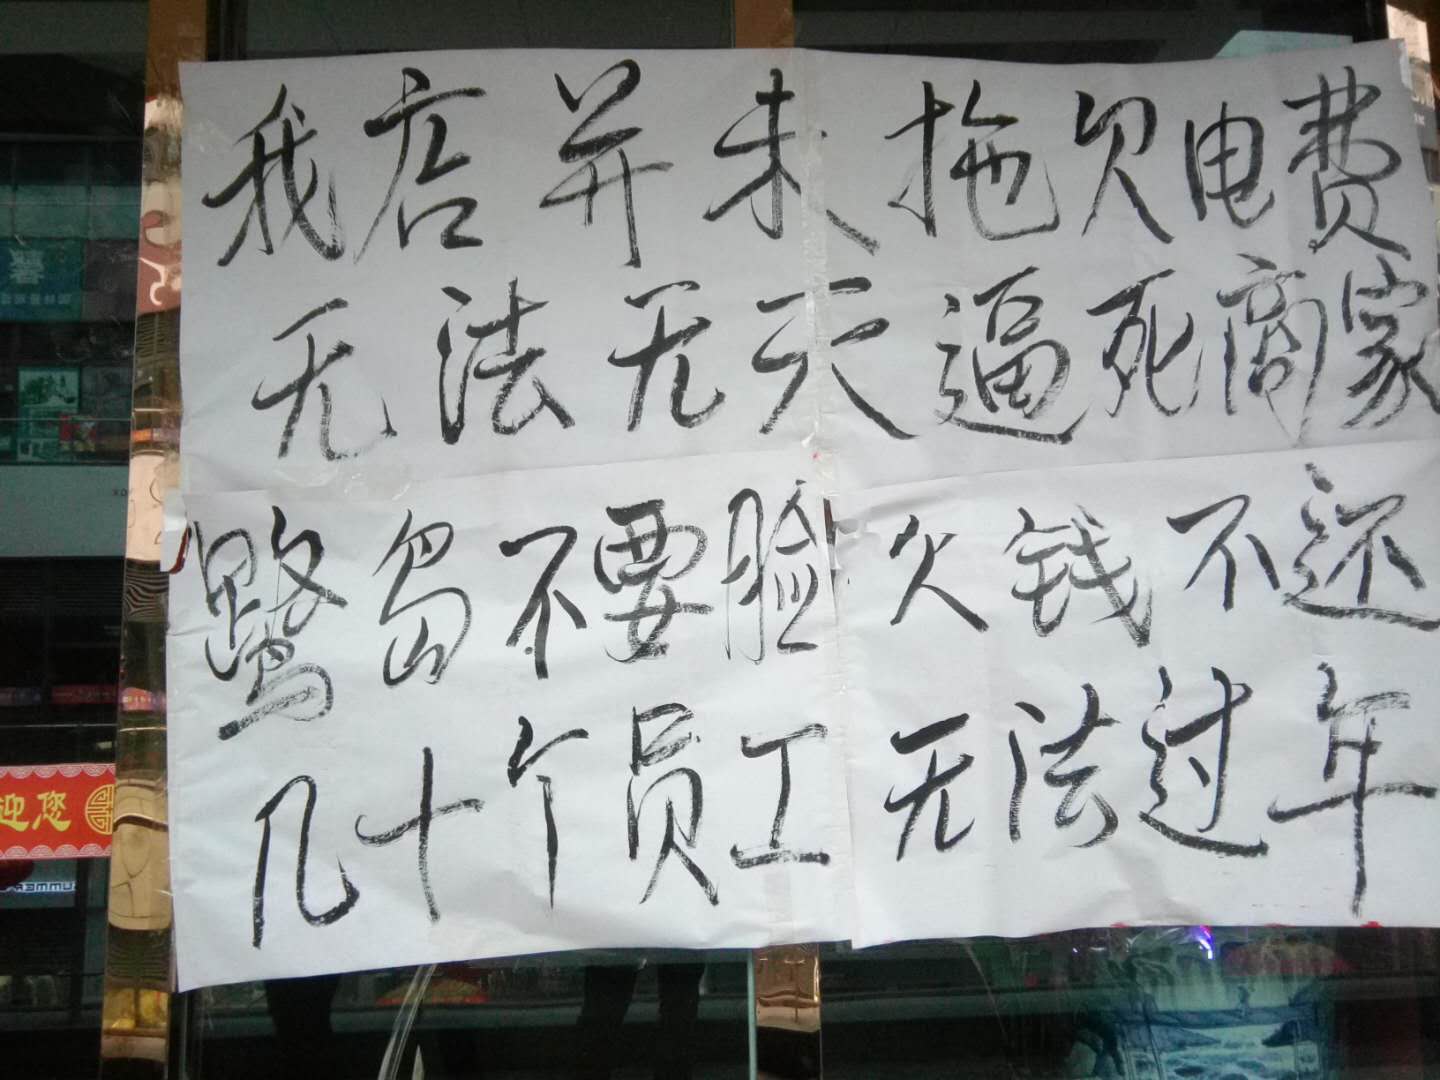 我店并未拖欠电费
无法无天逼死商家
鹭岛不要脸欠钱不还
几十个员工无法过年
迎您